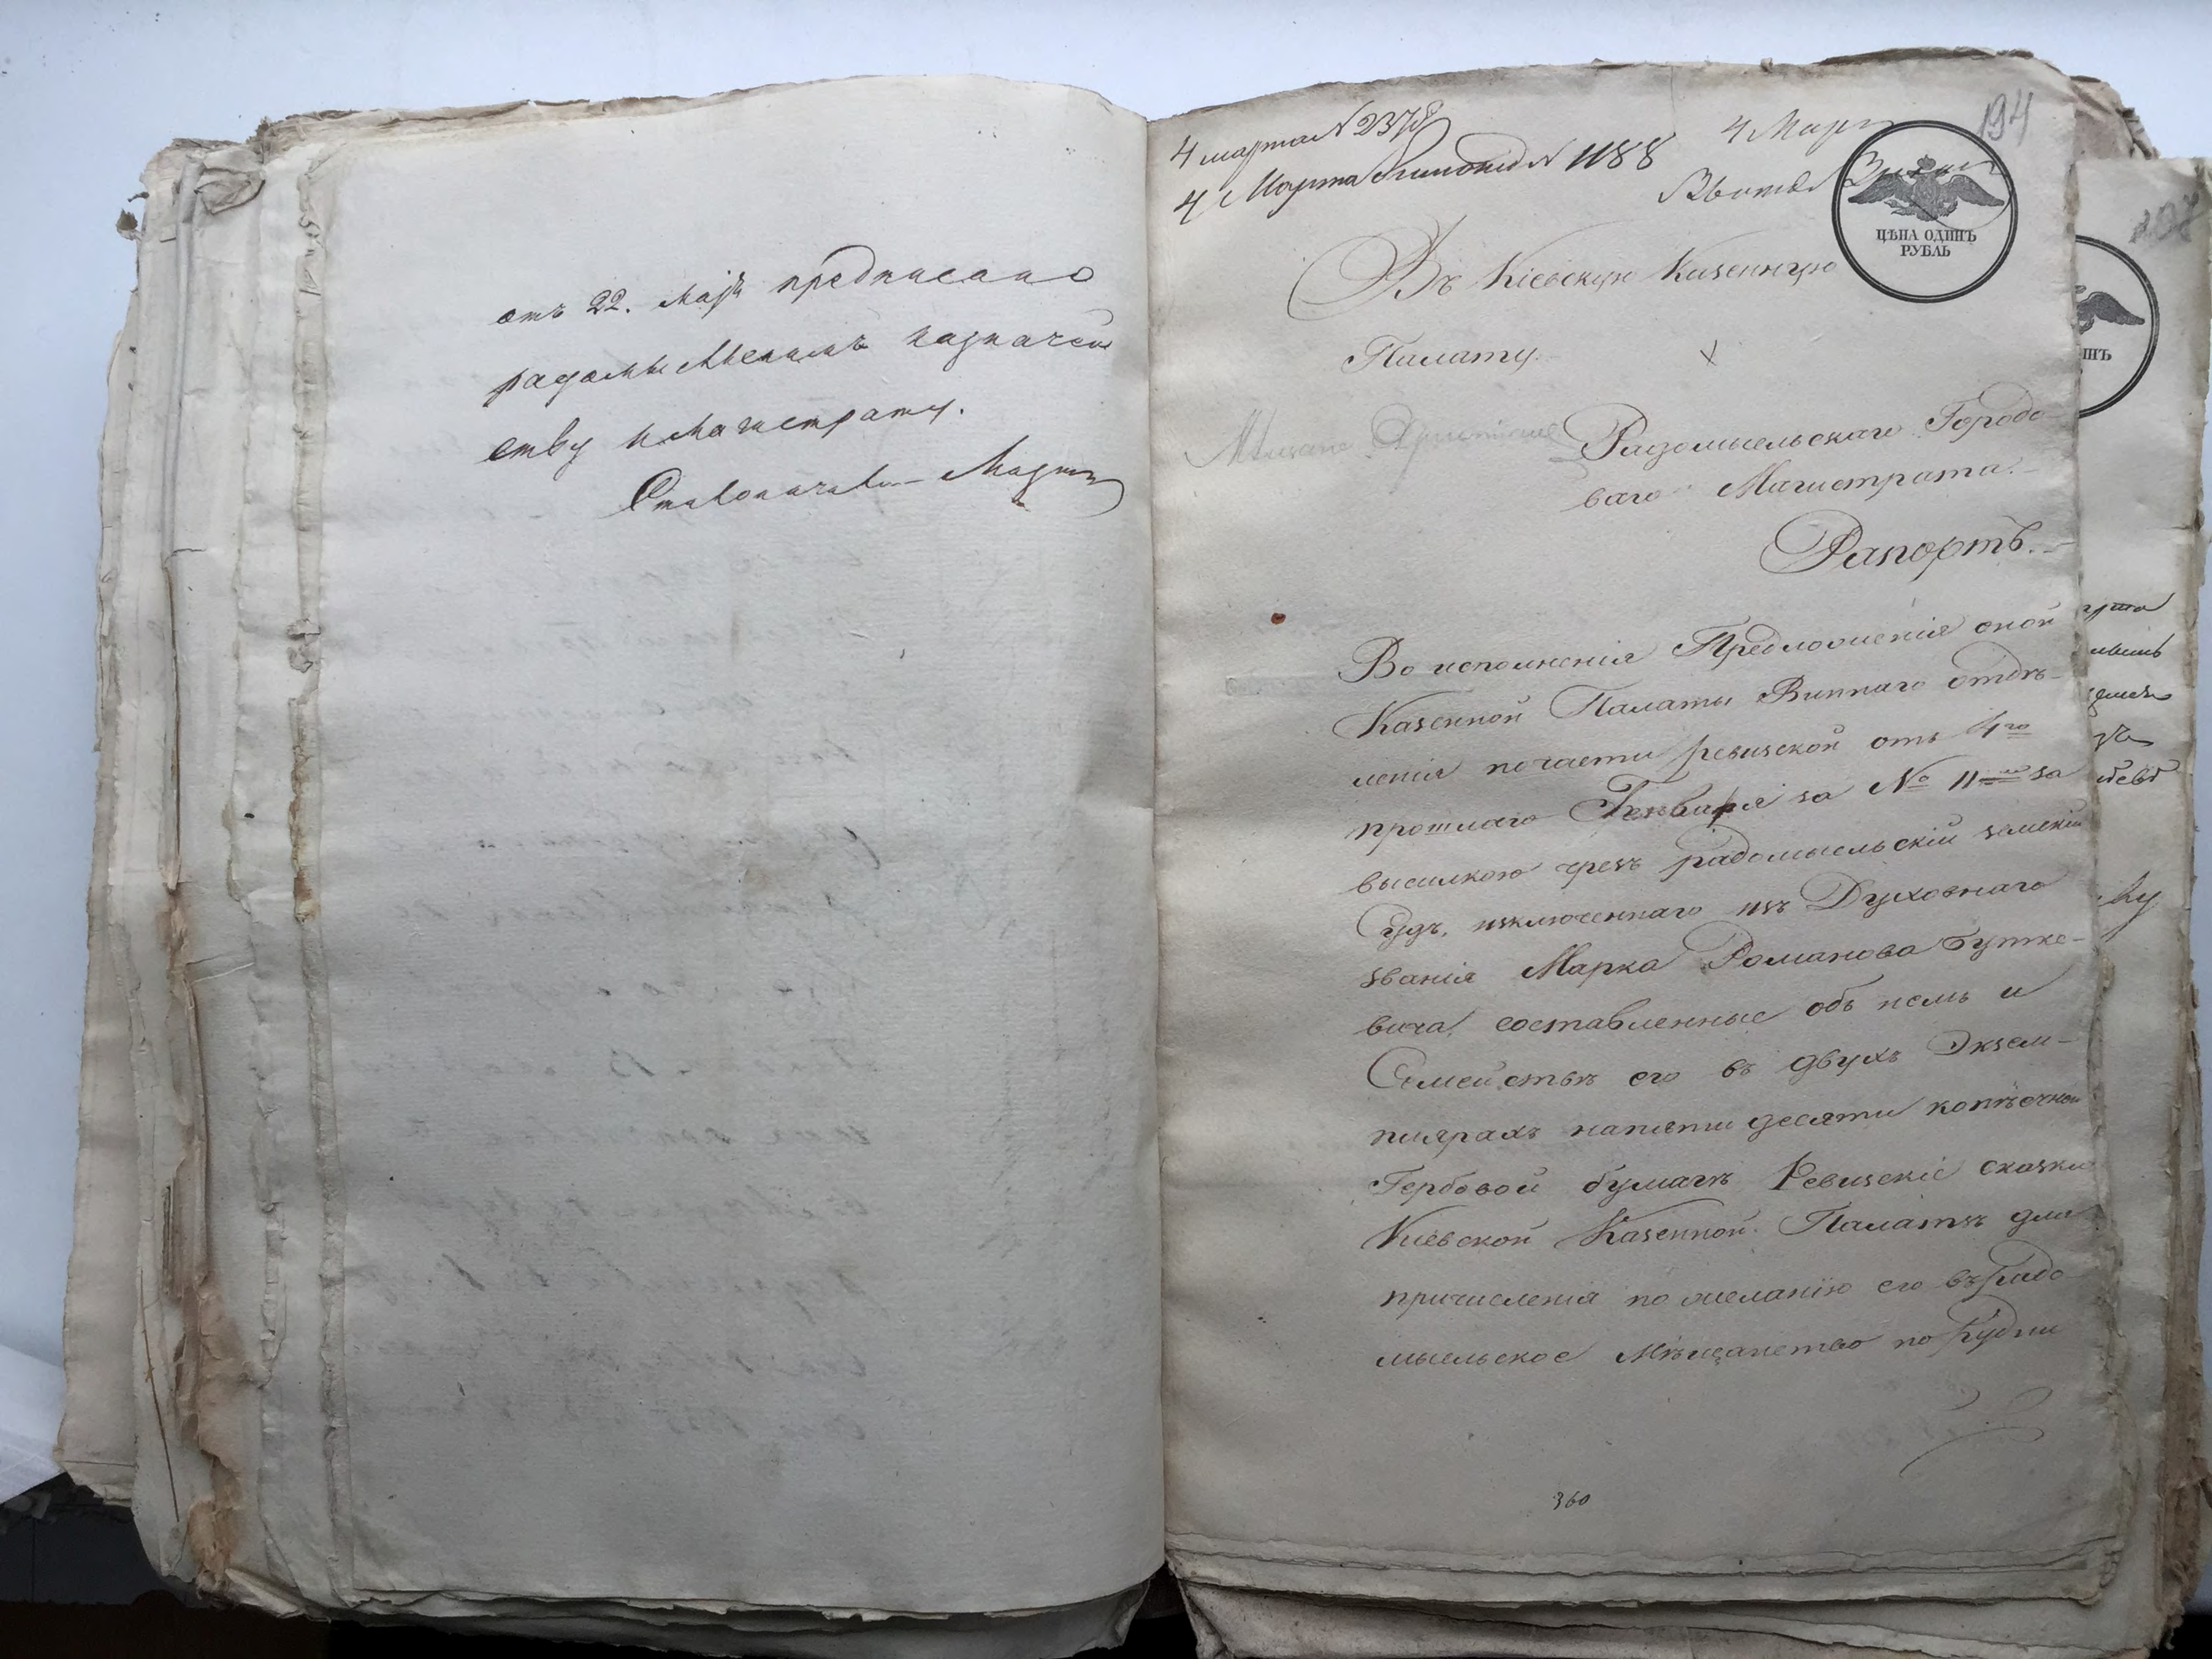 отъ 22. Маія предписано
радомысльскимъ казначей
ству и магистрату.
Столоначальн
4 марта N 2378
4 Марта N 1188
4 Мар
194
ЦѢНА ОДИНЪ
РУБЛЬ
Въ Кіевскую Казенную
Палату.
Радомысльскаго Городо
ваго Магистрата.
Рапортъ.
Во исполненія Предложенія оной
Казенной Палаты Виннаго отдѣ-
ленія по части ревизской отъ 4го
прошлаго Генваря за № 11м за
высылкою чрезъ радомысльскій земскій
Судъ, изключеннаго изъ Духовнаго
званія Марка Романова Бутке-
вича, составленные объ немъ и
Семействѣ его въ двухъ Экзем-
плярахъ на пяти десяти копѣечной
Гербовой бумагѣ Ревизскіе сказки
Киевской Казенной Палатѣ для
причисленія по желанію его въ Радо
мысльское Мѣщанство по Рудни
360